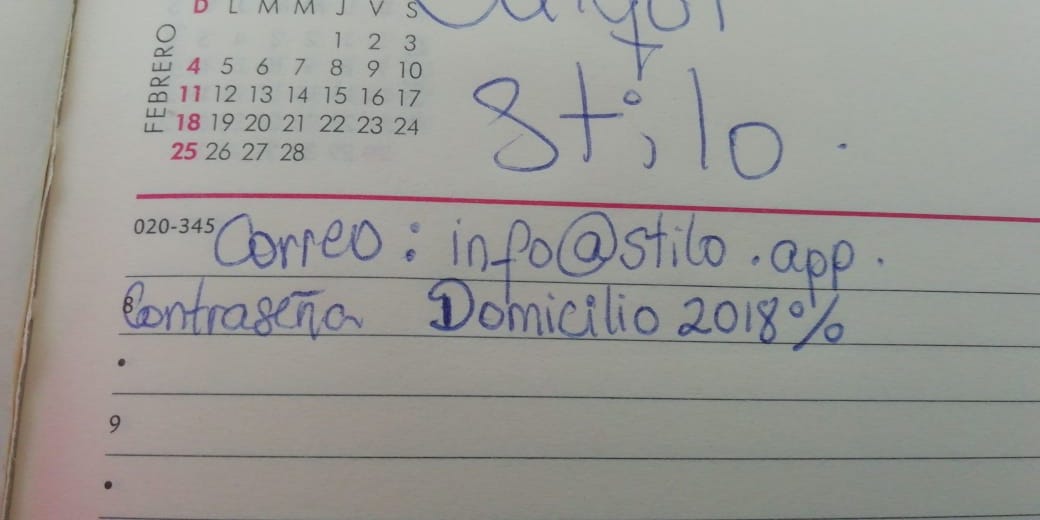 D L M M J V S
FEBRERO
1 2 3
4 5 6 7 8 9 10
11 12 13 14 15 16 17
18 19 20 21 22 23 24
25 26 27 28
Stilo.
020-345 Correo: info@stilo.app.
8 Contraseña Domicilio 2018%
9